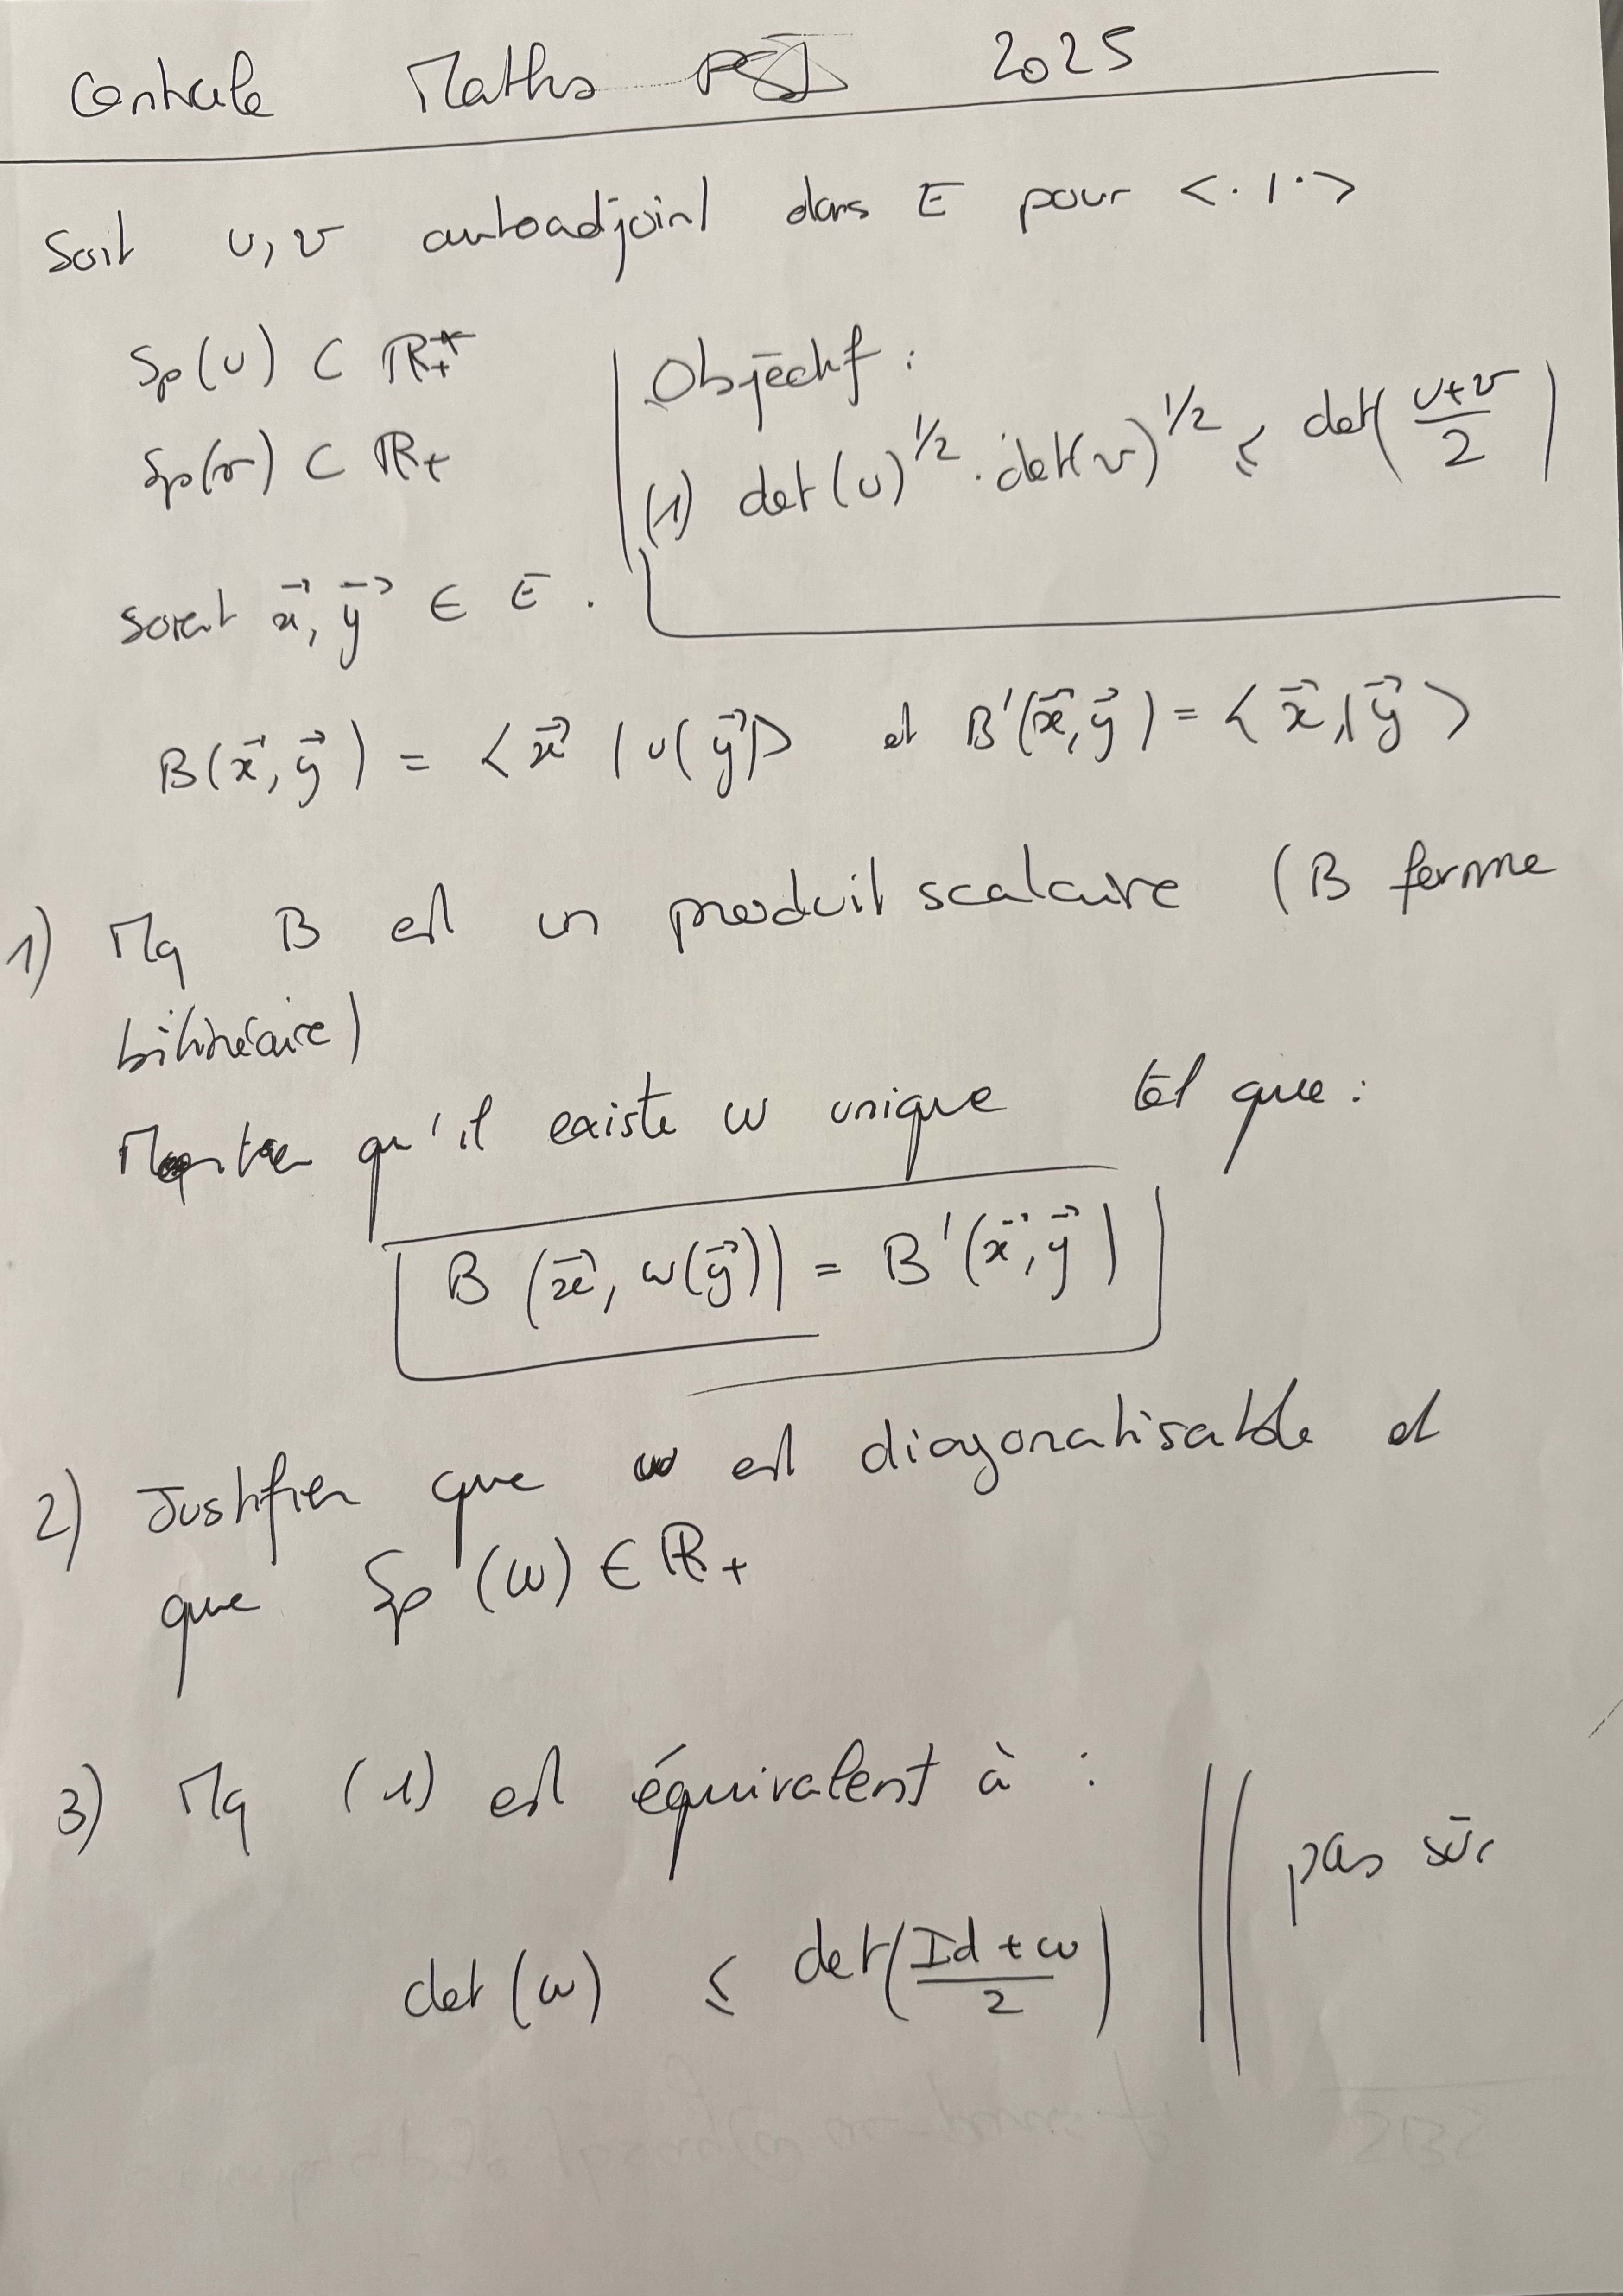 Centrale Maths PSI 2025
Soit u, v autoadjoint dans E pour <.|.>
Sp(u) ⊂ ℝ₊*
Sp(v) ⊂ ℝ₊
Objectif :
(1) det(u)^1/2 . det(v)^1/2 ≤ det((u+v)/2)
Soient x⃗, y⃗ ∈ E.
B(x⃗, y⃗) = <x⃗ | u(y⃗)> et B'(x⃗, y⃗) = <x⃗,|y⃗>
1) Mq B est un produit scalaire (B forme
bilinéaire)
Montrer qu'il existe w unique tel que :
B(x⃗, w(y⃗)) = B'(x⃗, y⃗)
2) Justifier que w est diagonalisable et
que Sp(w) ∈ ℝ₊
3) Mq (1) est équivalent à :
det(w) ≤ det((Id + w)/2)
pas sûr